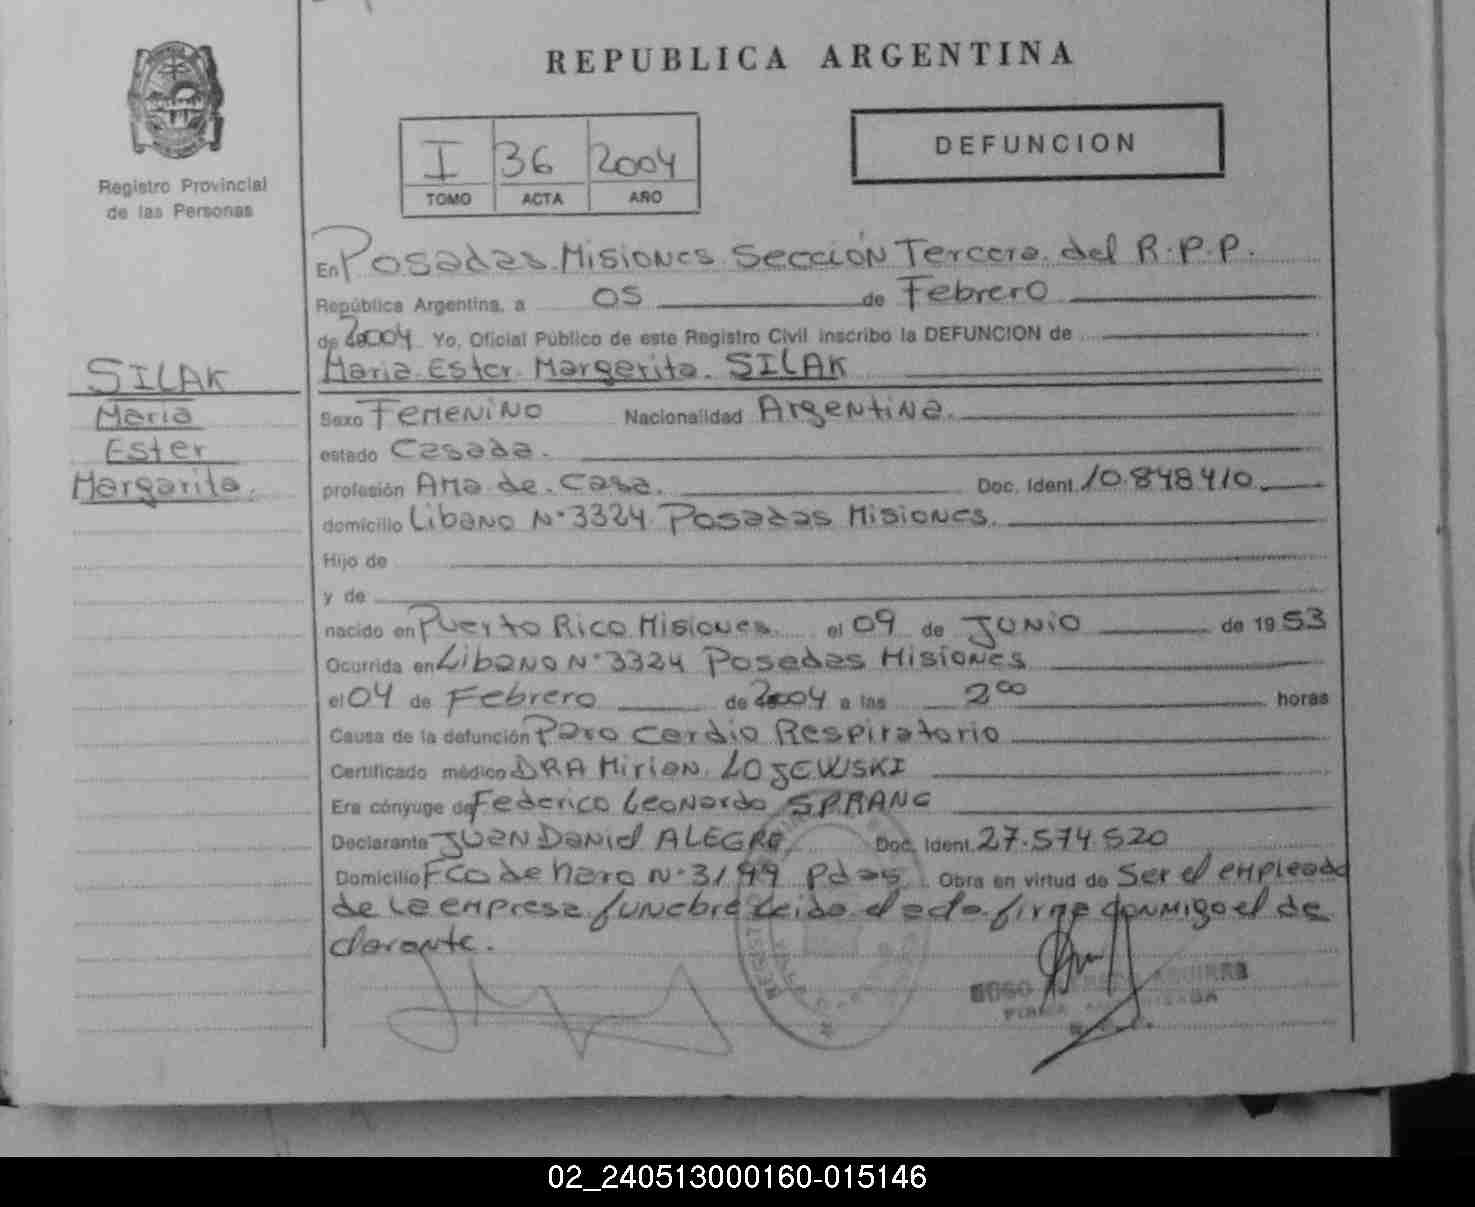 REPUBLICA ARGENTINA
Registro Provincial
de las Personas
I 36 2004
TOMO ACTA AÑO
DEFUNCION
En Posadas Misiones Sección Tercera del R.P.P.
República Argentina, a 05 de Febrero
de 2004 Yo, Oficial Público de este Registro Civil inscribo la DEFUNCION de
Maria Ester Margarita SILAK
SILAK
Maria
Ester
Margarita.
Sexo FEMENINO Nacionalidad Argentina.
estado Casada.
profesión Ama de Casa. Doc. Ident. 10.848.410
domicilio Libano N° 3324 Posadas Misiones.
Hijo de
y de
nacido en Puerto Rico Misiones. el 09 de JUNIO de 1953
Ocurrida en Libano N° 3324 Posadas Misiones
el 04 de Febrero de 2004 a las 2 00 horas
Causa de la defunción Paro Cardio Respiratorio
Certificado médico DRA Mirian LOJEWSKI
Era cónyuge de Federico Leonardo SPRANG
Declarante JUAN Daniel ALEGRE Doc. Ident. 27.574.520
Domicilio Fco de Haro N° 3199 Pdas. Obra en virtud de Ser el empleado
de la empresa funebre Leida el acta firma conmigo el de
clarante.
02_240513000160-015146